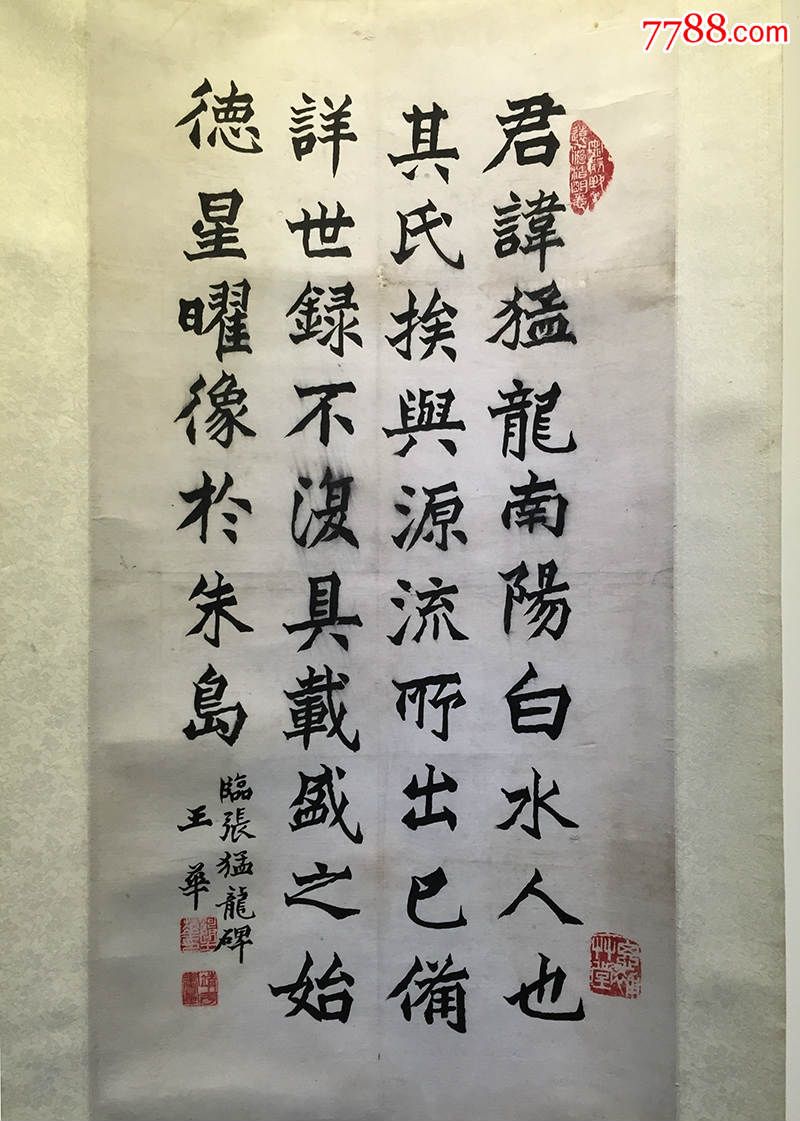 7788.com
君諱猛龍南陽白水人也
其氏挨與源流所出已備
詳世録不復具載盛之始
德星曜像於朱島
臨張猛龍碑
王華